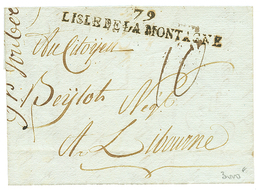 79
LISLE DE LA MONTAGNE
Au Citoyen
10
Beylot Neg.
A Libourne